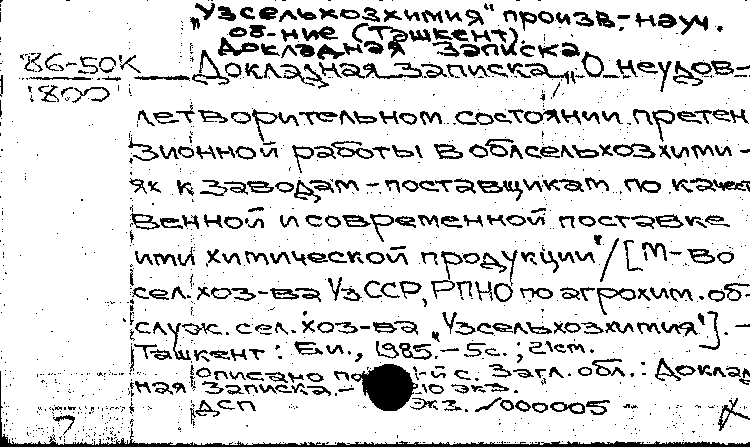 „Узсельхозхимия" произв.-науч.
об-ние (Ташкент).
Докладная записка.
86-50К Докладная записка „О неудов-
1800
летворительном состоянии претен
зионной работы в облсельхозхими-
ях к заводам-поставщикам по качест
венной и современной поставке
ими химической продукции"/[М-во
сел. хоз-ва УзССР, РПНО по агрохим. об-
служ. сел. хоз-ва „Узсельхозхимия"]. -
Ташкент: Б.и., 1985. - 5с.; 21см.
Описано по -й с. Загл. обл.: Доклад
ная записка. - 10 экз.
ДСП экз. √000005
7